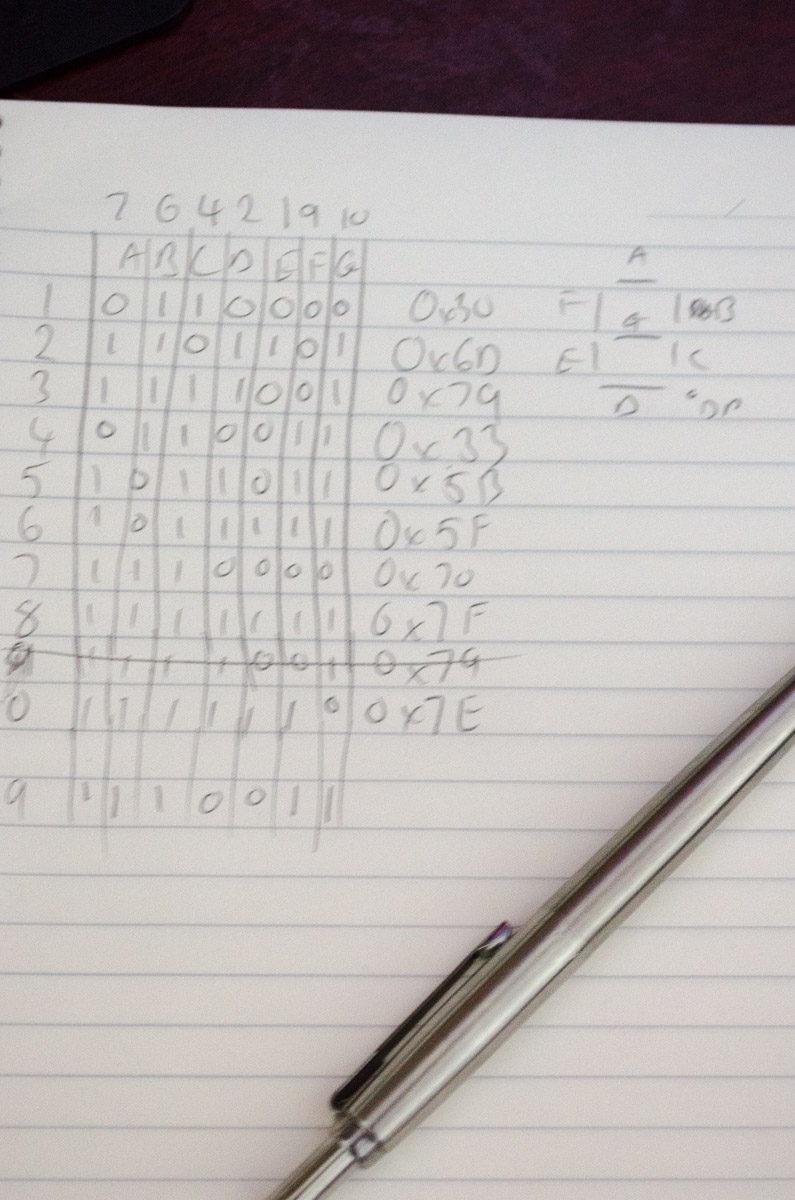 7 6 4 2 1 9 10
A B C D E F G
A
1 0 1 1 0 0 0 0 0x30 F B
G
2 1 1 0 1 1 0 1 0x6D E C
3 1 1 1 1 0 0 1 0x79 D DP
4 0 1 1 0 0 1 1 0x33
5 1 0 1 1 0 1 1 0x5B
6 1 0 1 1 1 1 1 0x5F
7 1 1 1 0 0 0 0 0x70
8 1 1 1 1 1 1 1 0x7F
9 1 1 1 1 0 0 1 0x79
0 1 1 1 1 1 1 0 0x7E
9 1 1 1 0 0 1 1